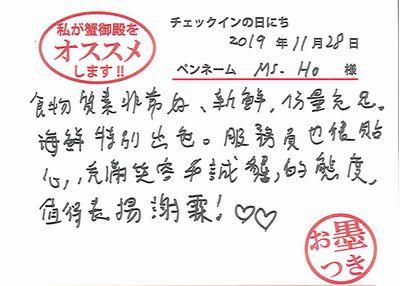 私が蟹御殿を
オススメ
します!!
チェックインの日にち
2019 年 11 月 28 日
ペンネーム Ms. Ho 様
食物質素非常好、新鮮,份量充足。
海鮮特別出色。服務員也很貼
心,充滿笑容和誠懇的態度,
值得表揚謝霖! ♡♡
お墨
つき